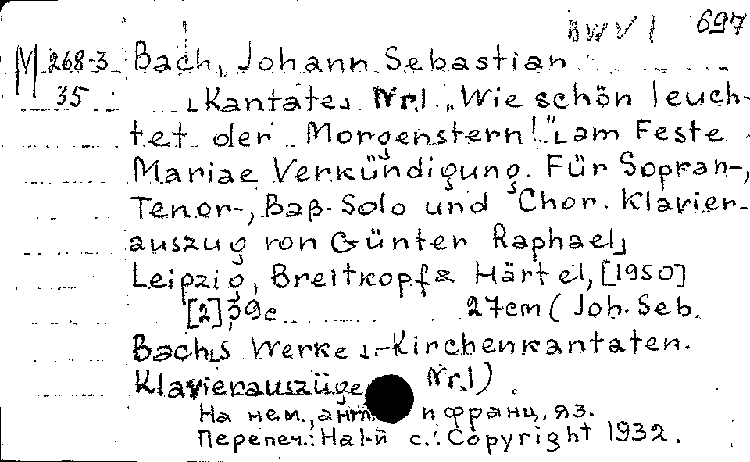 BWV 1 697
M 268-3 Bach, Johann Sebastian
35 [Kantate] Nr.1 „Wie schön leuch-
tet der Morgenstern!" [am Feste
Mariae Verkündigung. Für Sopran-,
Tenor-, Baß-Solo und Chor. Klavier-
auszug von Günter Raphael]
Leipzig, Breitkopf & Härtel, [1950]
[2], 39 с. 27cm (Joh. Seb.
Bachs Werke. Kirchenkantaten.
Klavierauszüge Nr.1)
На нем., англ. и франц. яз.
Перепеч.: На 1-й с.: Copyright 1932.